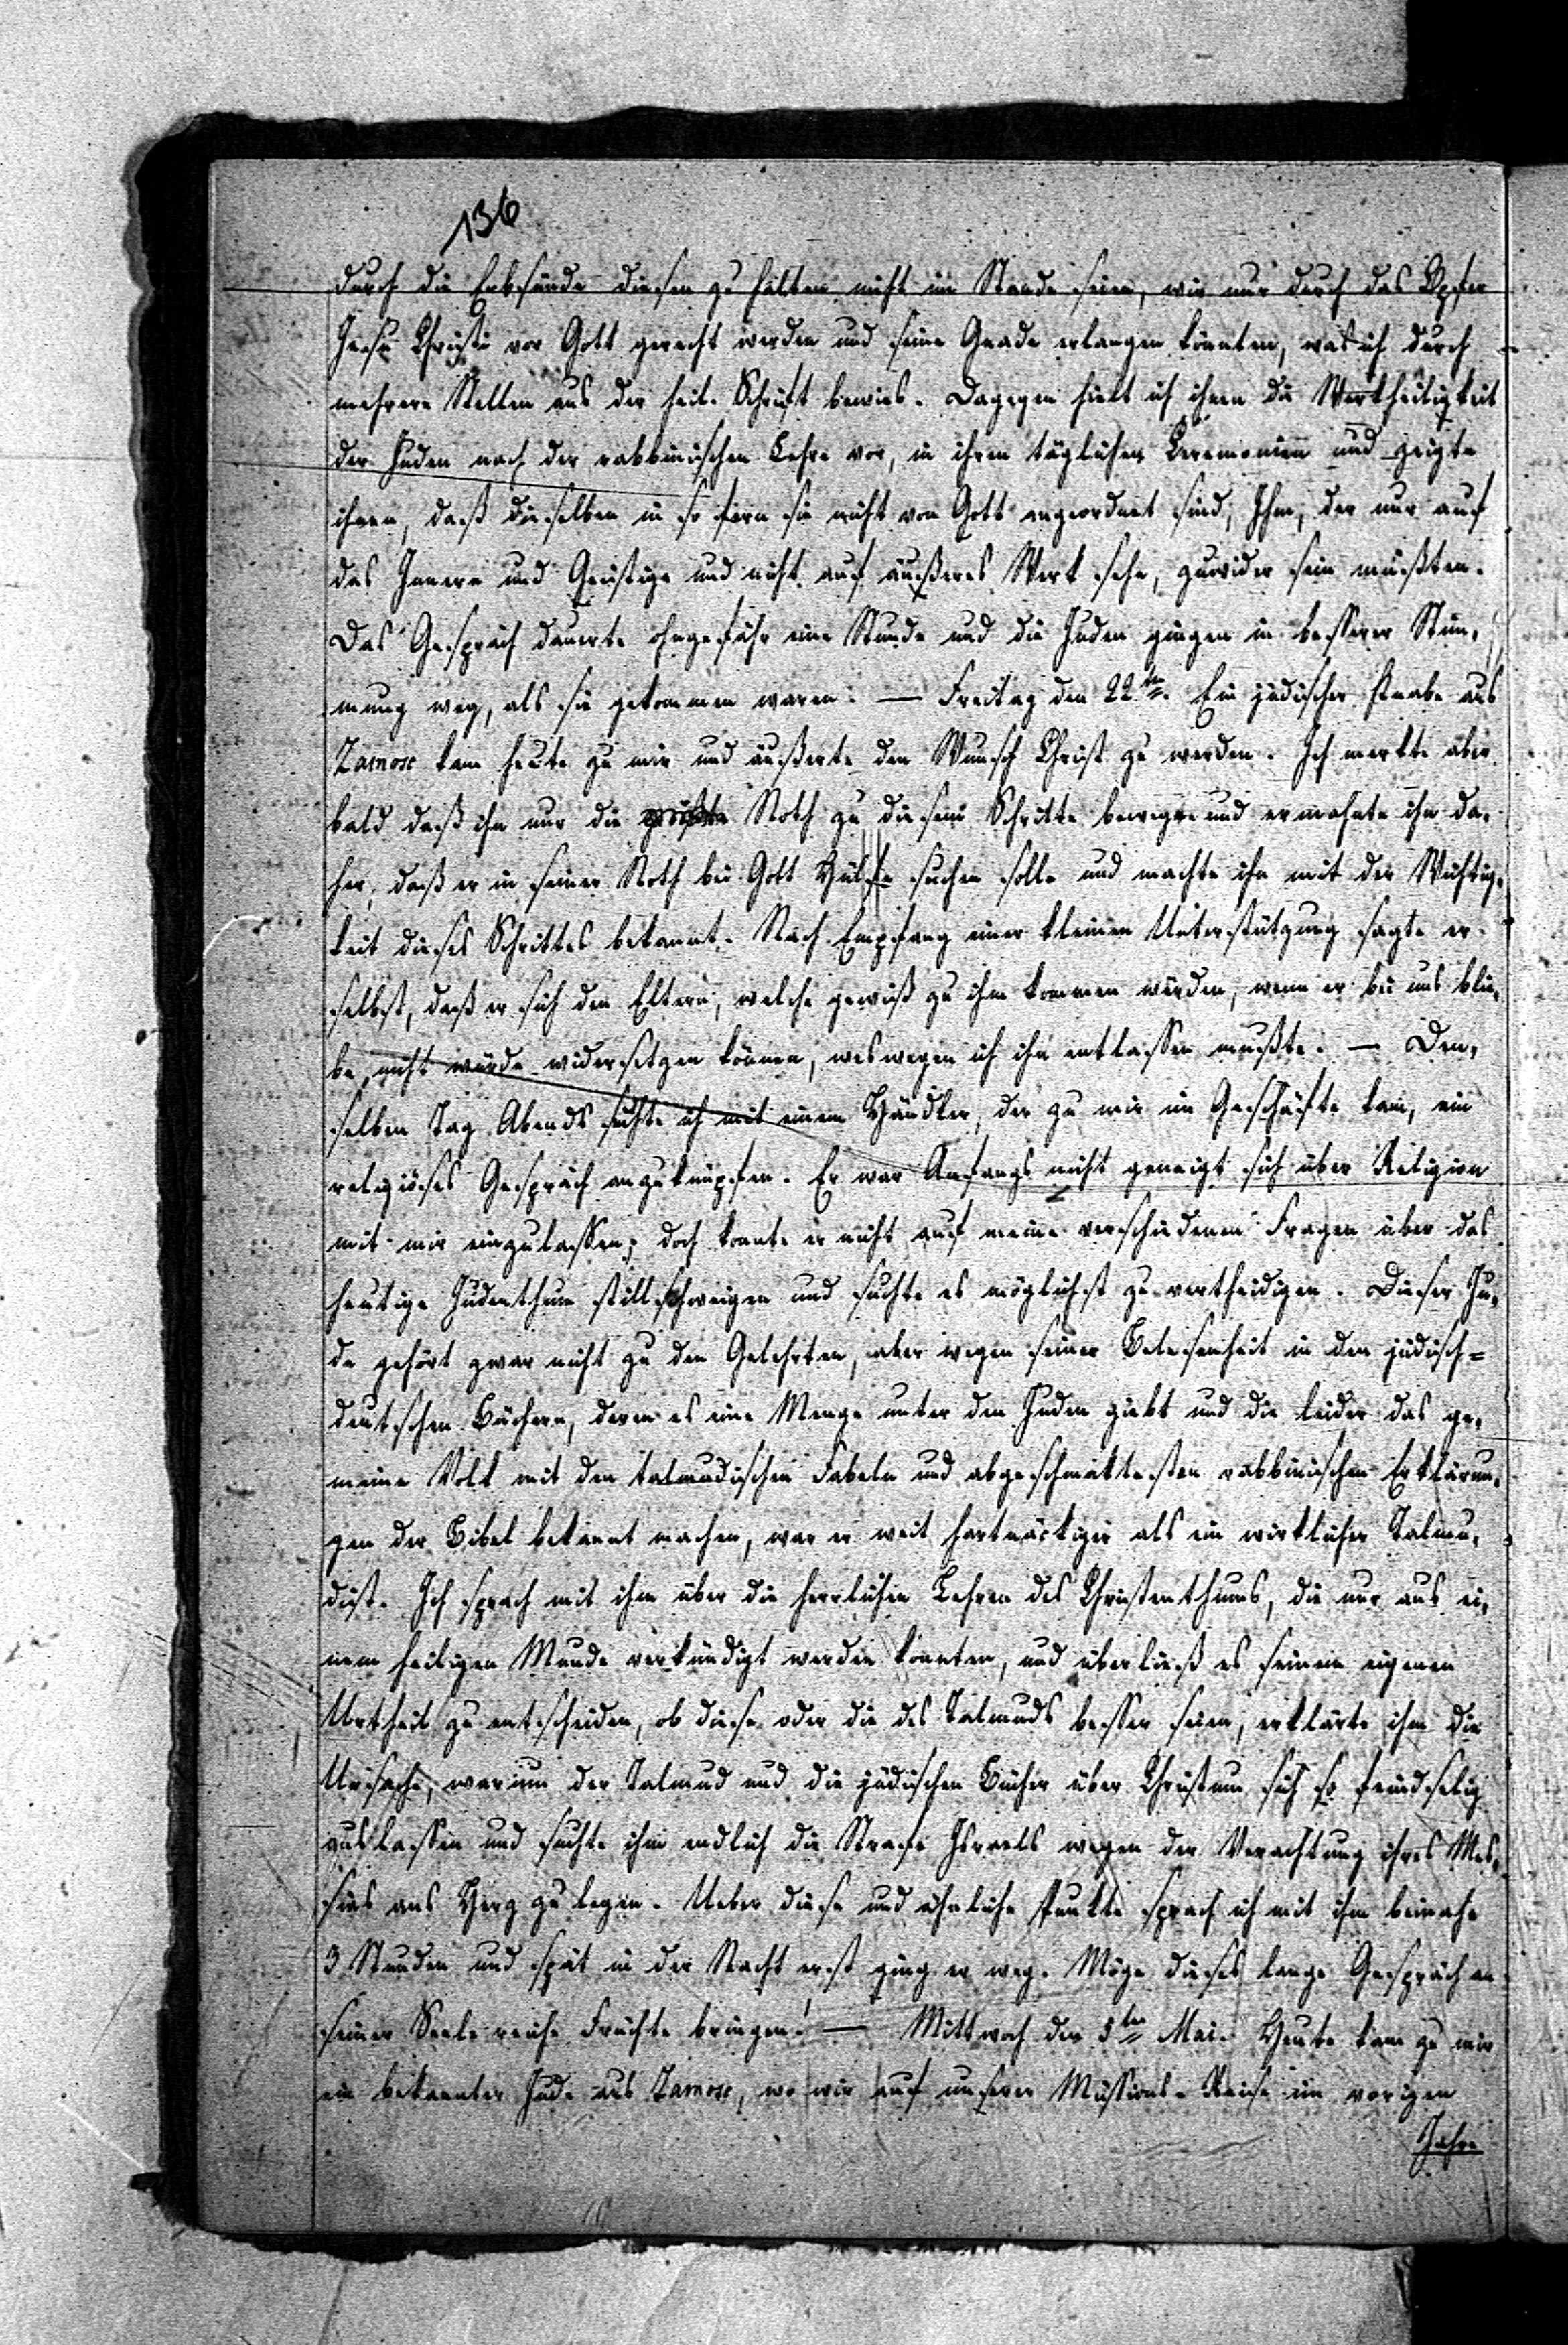 136
durch die Erbsünde diesen zu halten nicht im Stande seien, wir nur durch das Opfer
Jesu Christi vor Gott gerecht werden und seine Gnade erlangen könnten, was ich durch
mehrere Stellen aus der heil. Schrift bewies. Dagegen hielt ich ihnen die Werkheiligkeit
der Juden nach der rabbinischen Lehre vor, in ihren täglichen Ceremonien und zeigte
ihnen, daß dieselben in so fern sie nicht von Gott angeordnet sind, Ihm, der nur auf
das Innere und Geistige und nicht auf äußeres Werk sehe, zuwider sein müßten.
Das Gespräch dauerte ohngefähr eine Stunde und die Juden gingen in besserer Stim-
mung weg, als sie gekommen waren. — Freitag den 22ten. Ein jüdischer Knabe aus
Zamosc kam heute zu mir und äußerte den Wunsch Christ zu werden. Ich merkte aber
bald daß ihn nur die Noth zu diesem Schritte bewege und ermahnte ihn da-
her, daß er in seiner Noth bei Gott Hülfe suchen solle und machte ihn mit der Wichtig-
keit dieses Schrittes bekannt. Nach Empfang einer kleinen Unterstützung sagte er
selbst, daß er sich den Eltern, welche gewiß zu ihm kommen würden, wenn er bei uns blie-
be, nicht würde widersetzen können, weswegen ich ihn entlassen mußte. — Den-
selben Tag Abends suchte ich mit einem Händler, der zu mir im Geschäfte kam, ein
religiöses Gespräch anzuknüpfen. Er war Anfangs nicht geneigt sich über Religion
mit mir einzulassen; doch konnte er nicht auf meine verschiedenen Fragen über das
heutige Judenthum stillschweigen und suchte es möglichst zu vertheidigen. Dieser Ju-
de gehört zwar nicht zu den Gelehrten, aber wegen seiner Belesenheit in den jüdisch=
deutschen Büchern, deren es eine Menge unter den Juden giebt und die leider das ge-
meine Volk mit den talmudischen Fabeln und abgeschmaktesten rabbinischen Erklärun-
gen der Bibel bekannt machen, war er weit hartnäckiger als ein wirklicher Talmu-
dist. Ich sprach mit ihm über die herrlichen Lehren des Christenthums, die nur aus ei-
nem heiligen Munde verkündigt werden konnten, und überließ es seinem eigenen
Urtheil zu entscheiden, ob diese oder die des Talmuds besser seien, erklärte ihm die
Ursache, warum der Talmud und die jüdischen Bücher über Christum sich so feindselig
auslassen und suchte ihm endlich die Strafe Israels wegen der Verachtung ihres Mes-
sias ans Herz zu legen. Ueber diese und ähnliche Punkte sprach ich mit ihm beinahe
3 Stunden und spät in der Nacht erst ging er weg. Möge dieses lange Gespräch an
seiner Seele reiche Früchte bringen! — Mittwoch den 5ten Mai. Heute kam zu mir
ein bekannter Jude aus Zamosc, wo wir auf unserer Missions-Reise im vorigen
Jahre